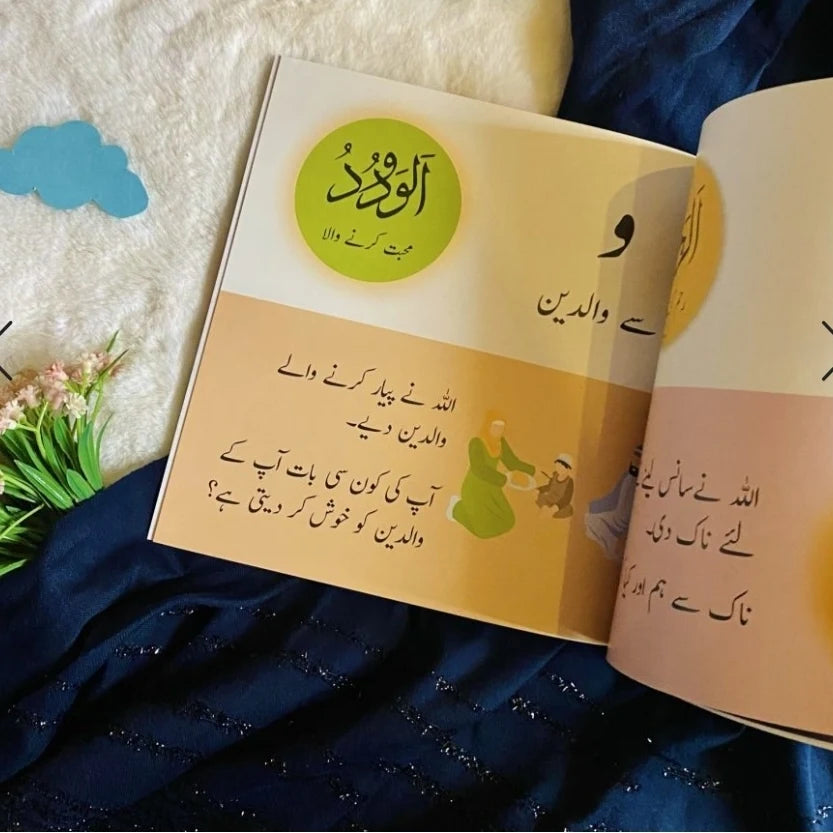 اَلوَدُودُ
محبت کرنے والا
و
سے والدین
اللہ نے پیار کرنے والے
والدین دیے۔
آپ کی کون سی بات آپ کے
والدین کو خوش کر دیتی ہے؟
اللہ نے سانس لینے
لئے ناک دی۔
ناک سے ہم اور